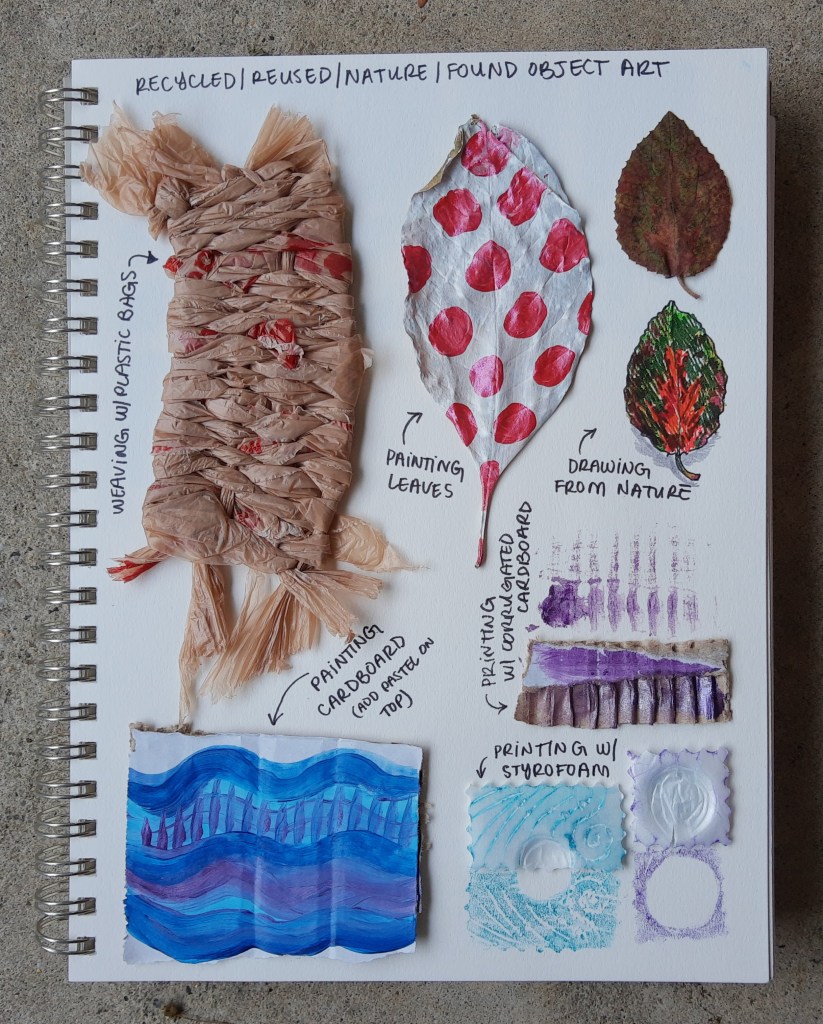 RECYCLED/REUSED/NATURE/FOUND OBJECT ART
WEAVING W/PLASTIC BAGS
PAINTING
LEAVES
DRAWING
FROM NATURE
PRINTING
W/ CORRUGATED
CARDBOARD
PAINTING
CARDBOARD
(ADD PASTEL ON
TOP)
PRINTING W/
STYROFOAM